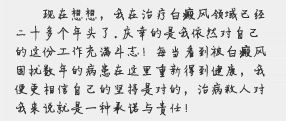 现在想想，我在治疗白癜风领域已经
二十多个年头了.庆幸的是我依然对自己
的这份工作充满斗志！每当看到被白癜风
困扰数年的病患在这里重新得到健康，我
便更相信自己的坚持是对的，治病救人对
我来说就是一种承诺与责任！